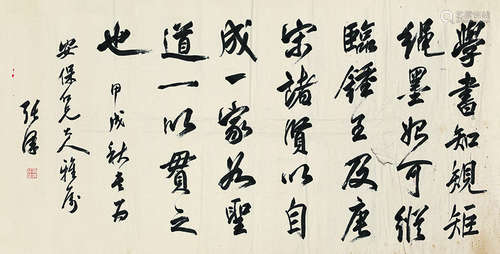 學書知規矩
繩墨始可縱
臨鍾王及唐
宋諸賢以自
成一家為聖
道一以貫之
也 甲戌秋書為
安保兄大人雅屬